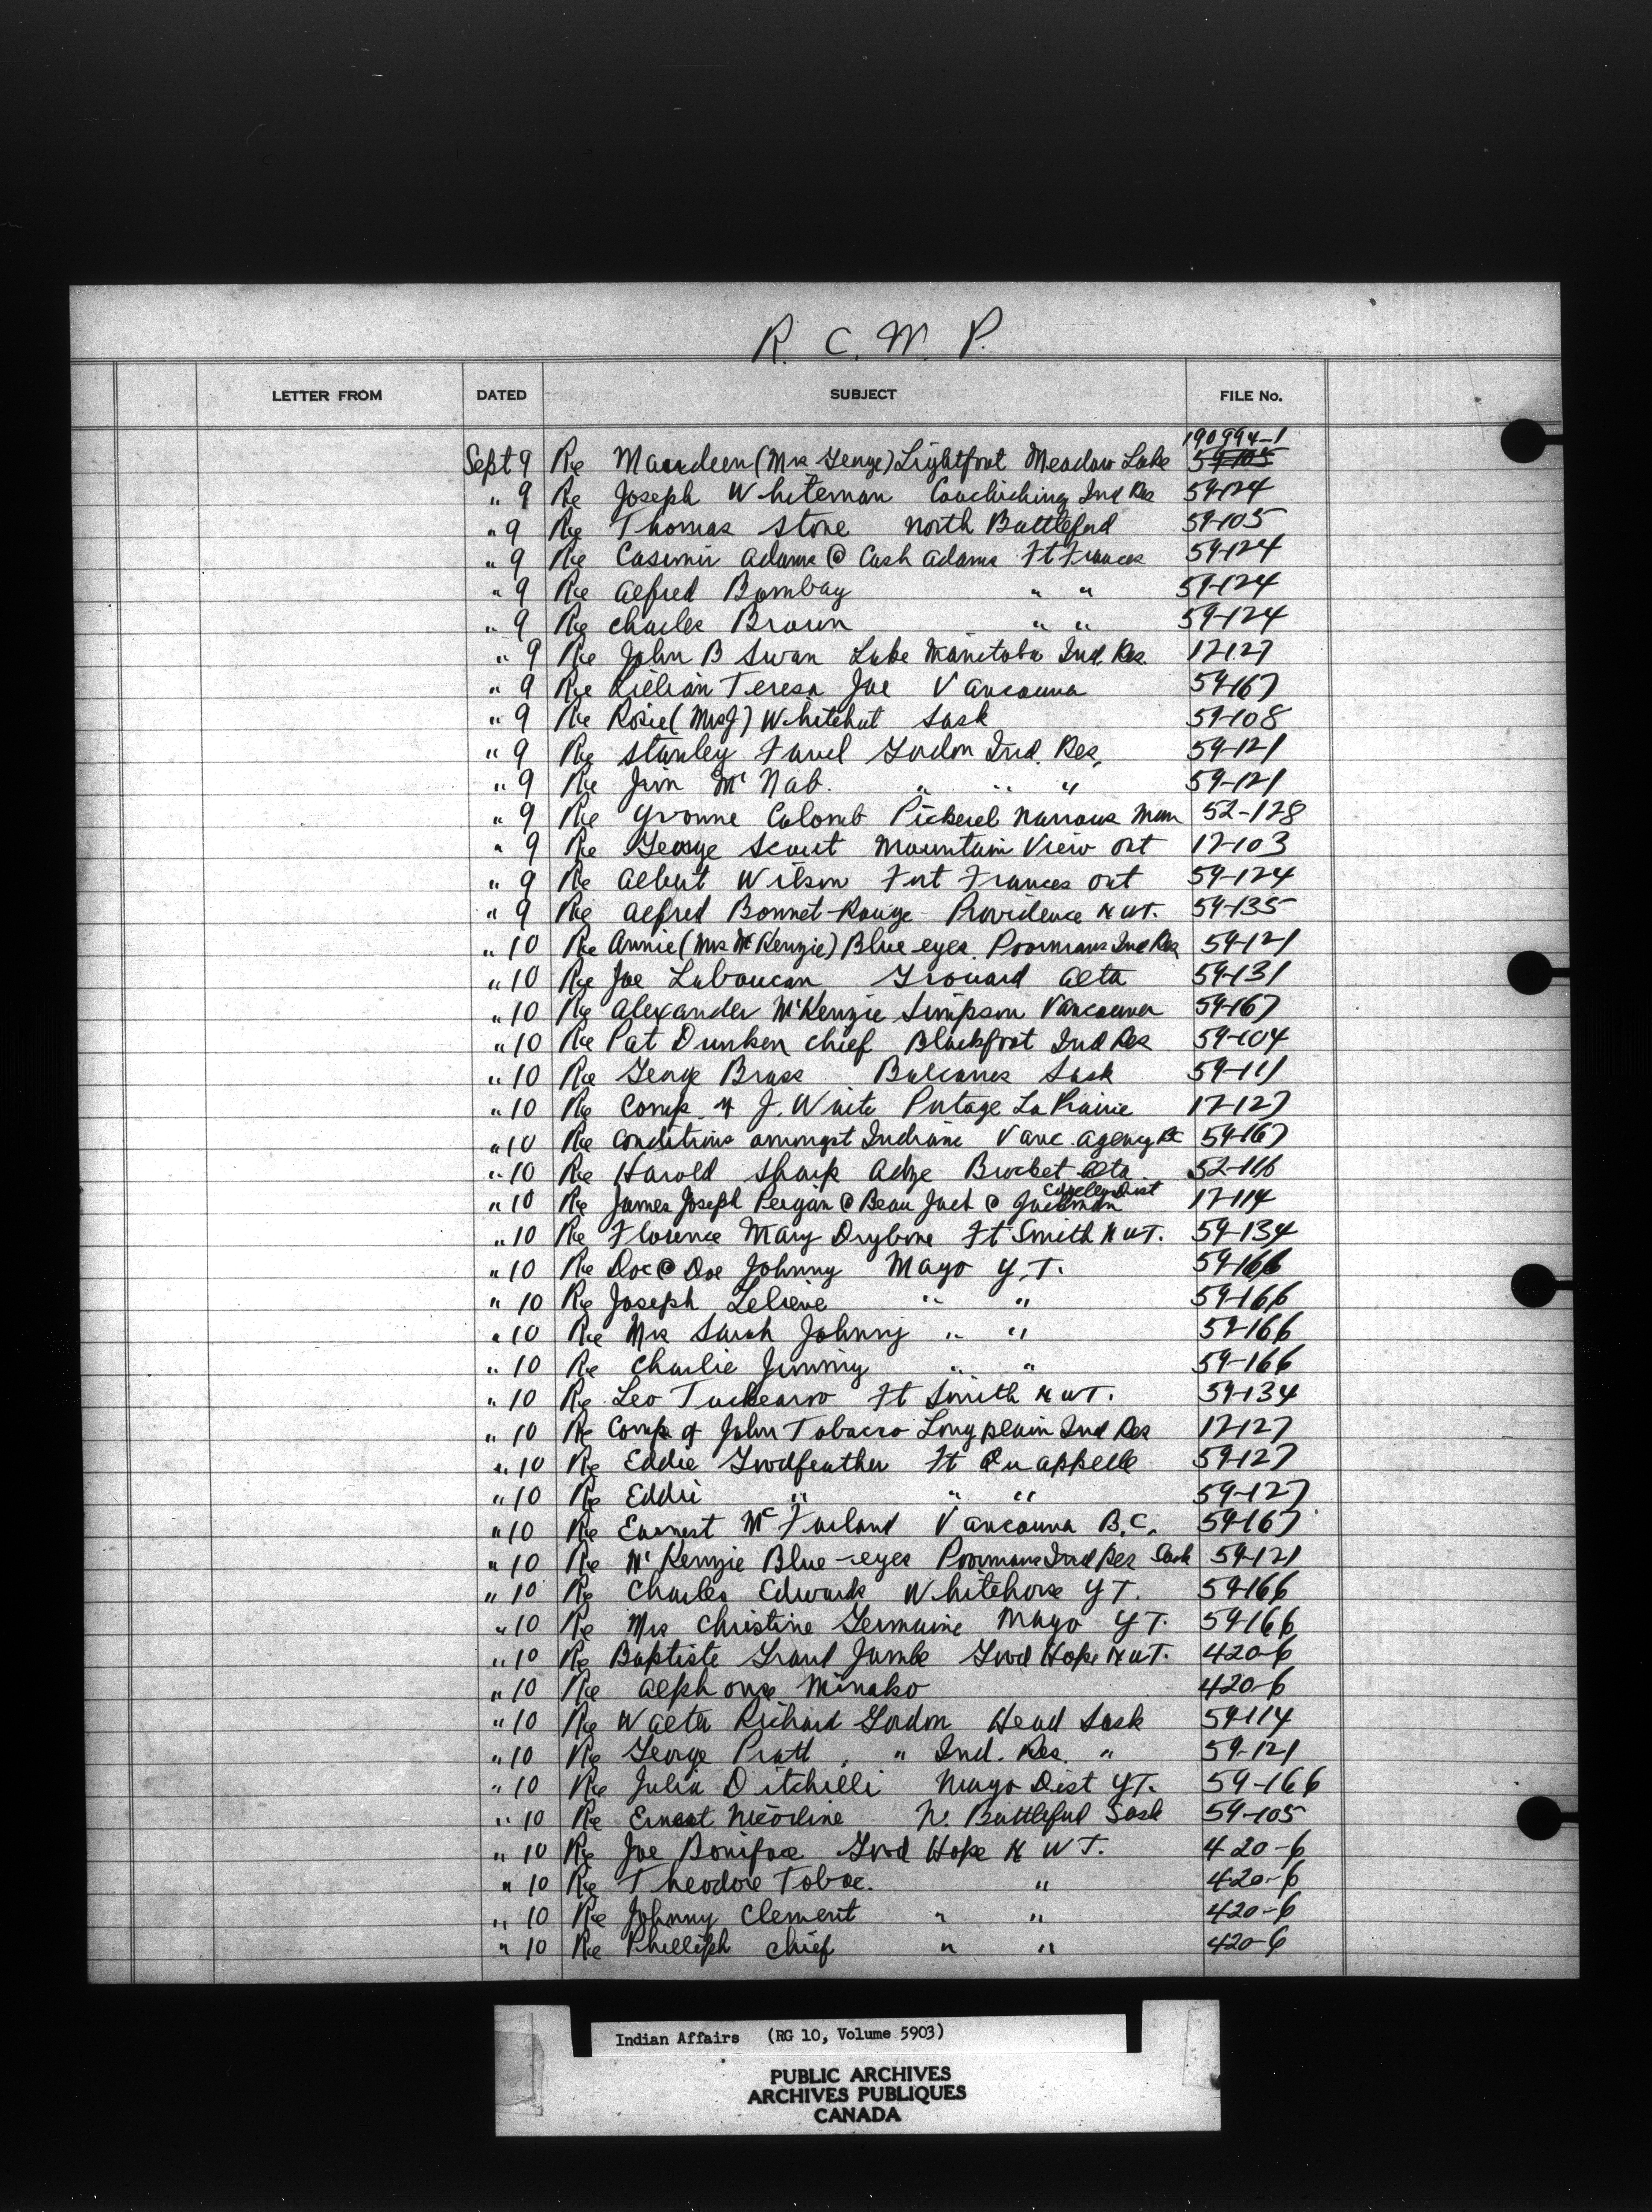 R. C. M. P.
LETTER FROM DATED SUBJECT FILE No.
190994-1
Sept 9 Re Maurdeen (Mrs George) Lightfoot Meadow Lake 59-105
" 9 Re Joseph Whiteman Couchiching Ind Res 59-124
" 9 Re Thomas Stone North Battleford 59-105
" 9 Re Casimir Adams @ Cash Adams Ft Frances 59-124
" 9 Re Alfred Bombay " " 59-124
" 9 Re Charles Brown " " 59-124
" 9 Re John B Swan Lake Manitoba Ind. Res. 17-127
" 9 Re Lillian Teresa Joe Vancouver 59-167
" 9 Re Rosie (Mrs J) Whitehut Sask 59-108
" 9 Re Stanley Favel Gordon Ind. Res. 59-121
" 9 Re Jim McNab. " " " 59-121
" 9 Re Yvonne Colomb Pickerel Narrows Man 52-128
" 9 Re George Scout Mountain View Ont 17-103
" 9 Re Albert Wilson Fort Frances Ont 59-124
" 9 Re Alfred Bonnet-Rouge Providence NWT. 59-135
" 10 Re Annie (Mrs McKenzie) Blue-eyes. Poormans Ind Res 59-121
" 10 Re Joe Laboucan Grouard Alta 59-131
" 10 Re Alexander McKenzie Simpson Vancouver 59-167
" 10 Re Pat Drunken Chief Blackfoot Ind Res 59-104
" 10 Re George Brass Balcarres Sask 59-111
" 10 Re Comp. of J. Waite Portage La Prairie 17-127
" 10 Re Conditions amongst Indians Vanc. Agency BC 59-167
" 10 Re Harold Sharp Adze Brocket Alta 52-116
" 10 Re James Joseph Peigan @ Beau Jack @ Jackman Dist 17-114
" 10 Re Florence Mary Drybone Ft Smith NWT. 59-134
" 10 Re Doc @ Doe Johnny Mayo Y.T. 59-166
" 10 Re Joseph Lelieve " " 59-166
" 10 Re Mrs Sarah Johnny " " 59-166
" 10 Re Charlie Jimmy " " 59-166
" 10 Re Leo Tuckearoo Ft Smith NWT. 59-134
" 10 Re Comp of John Tobacco Long plain Ind Res 17-127
" 10 Re Eddie Goodfeather Ft Qu appelle 59-127
" 10 Re Eddie " " " 59-127
" 10 Re Earnest McFarland Vancouver B.C. 59-167
" 10 Re McKenzie Blue-eyes Poormans Ind Res Sask 59-121
" 10 Re Charles Edwards Whitehorse YT. 59-166
" 10 Re Mrs Christine Germaine Mayo YT. 59-166
" 10 Re Baptiste Grand Jambe Good Hope NWT. 420-6
" 10 Re Alphonse Minako 420-6
" 10 Re Walter Richard Gordon Head Sask 59-114
" 10 Re George Pratt, " Ind. Res. " 59-121
" 10 Re Julia Ditchilli Mayo Dist YT. 59-166
" 10 Re Ernest Nicotine N. Battleford Sask 59-105
" 10 Re Joe Boniface Good Hope NWT. 420-6
" 10 Re Theodore Tobac. " 420-6
" 10 Re Johnny Clement " " 420-6
" 10 Re Phillip Chief " " 420-6
Indian Affairs (RG 10, Volume 5903)
PUBLIC ARCHIVES
ARCHIVES PUBLIQUES
CANADA